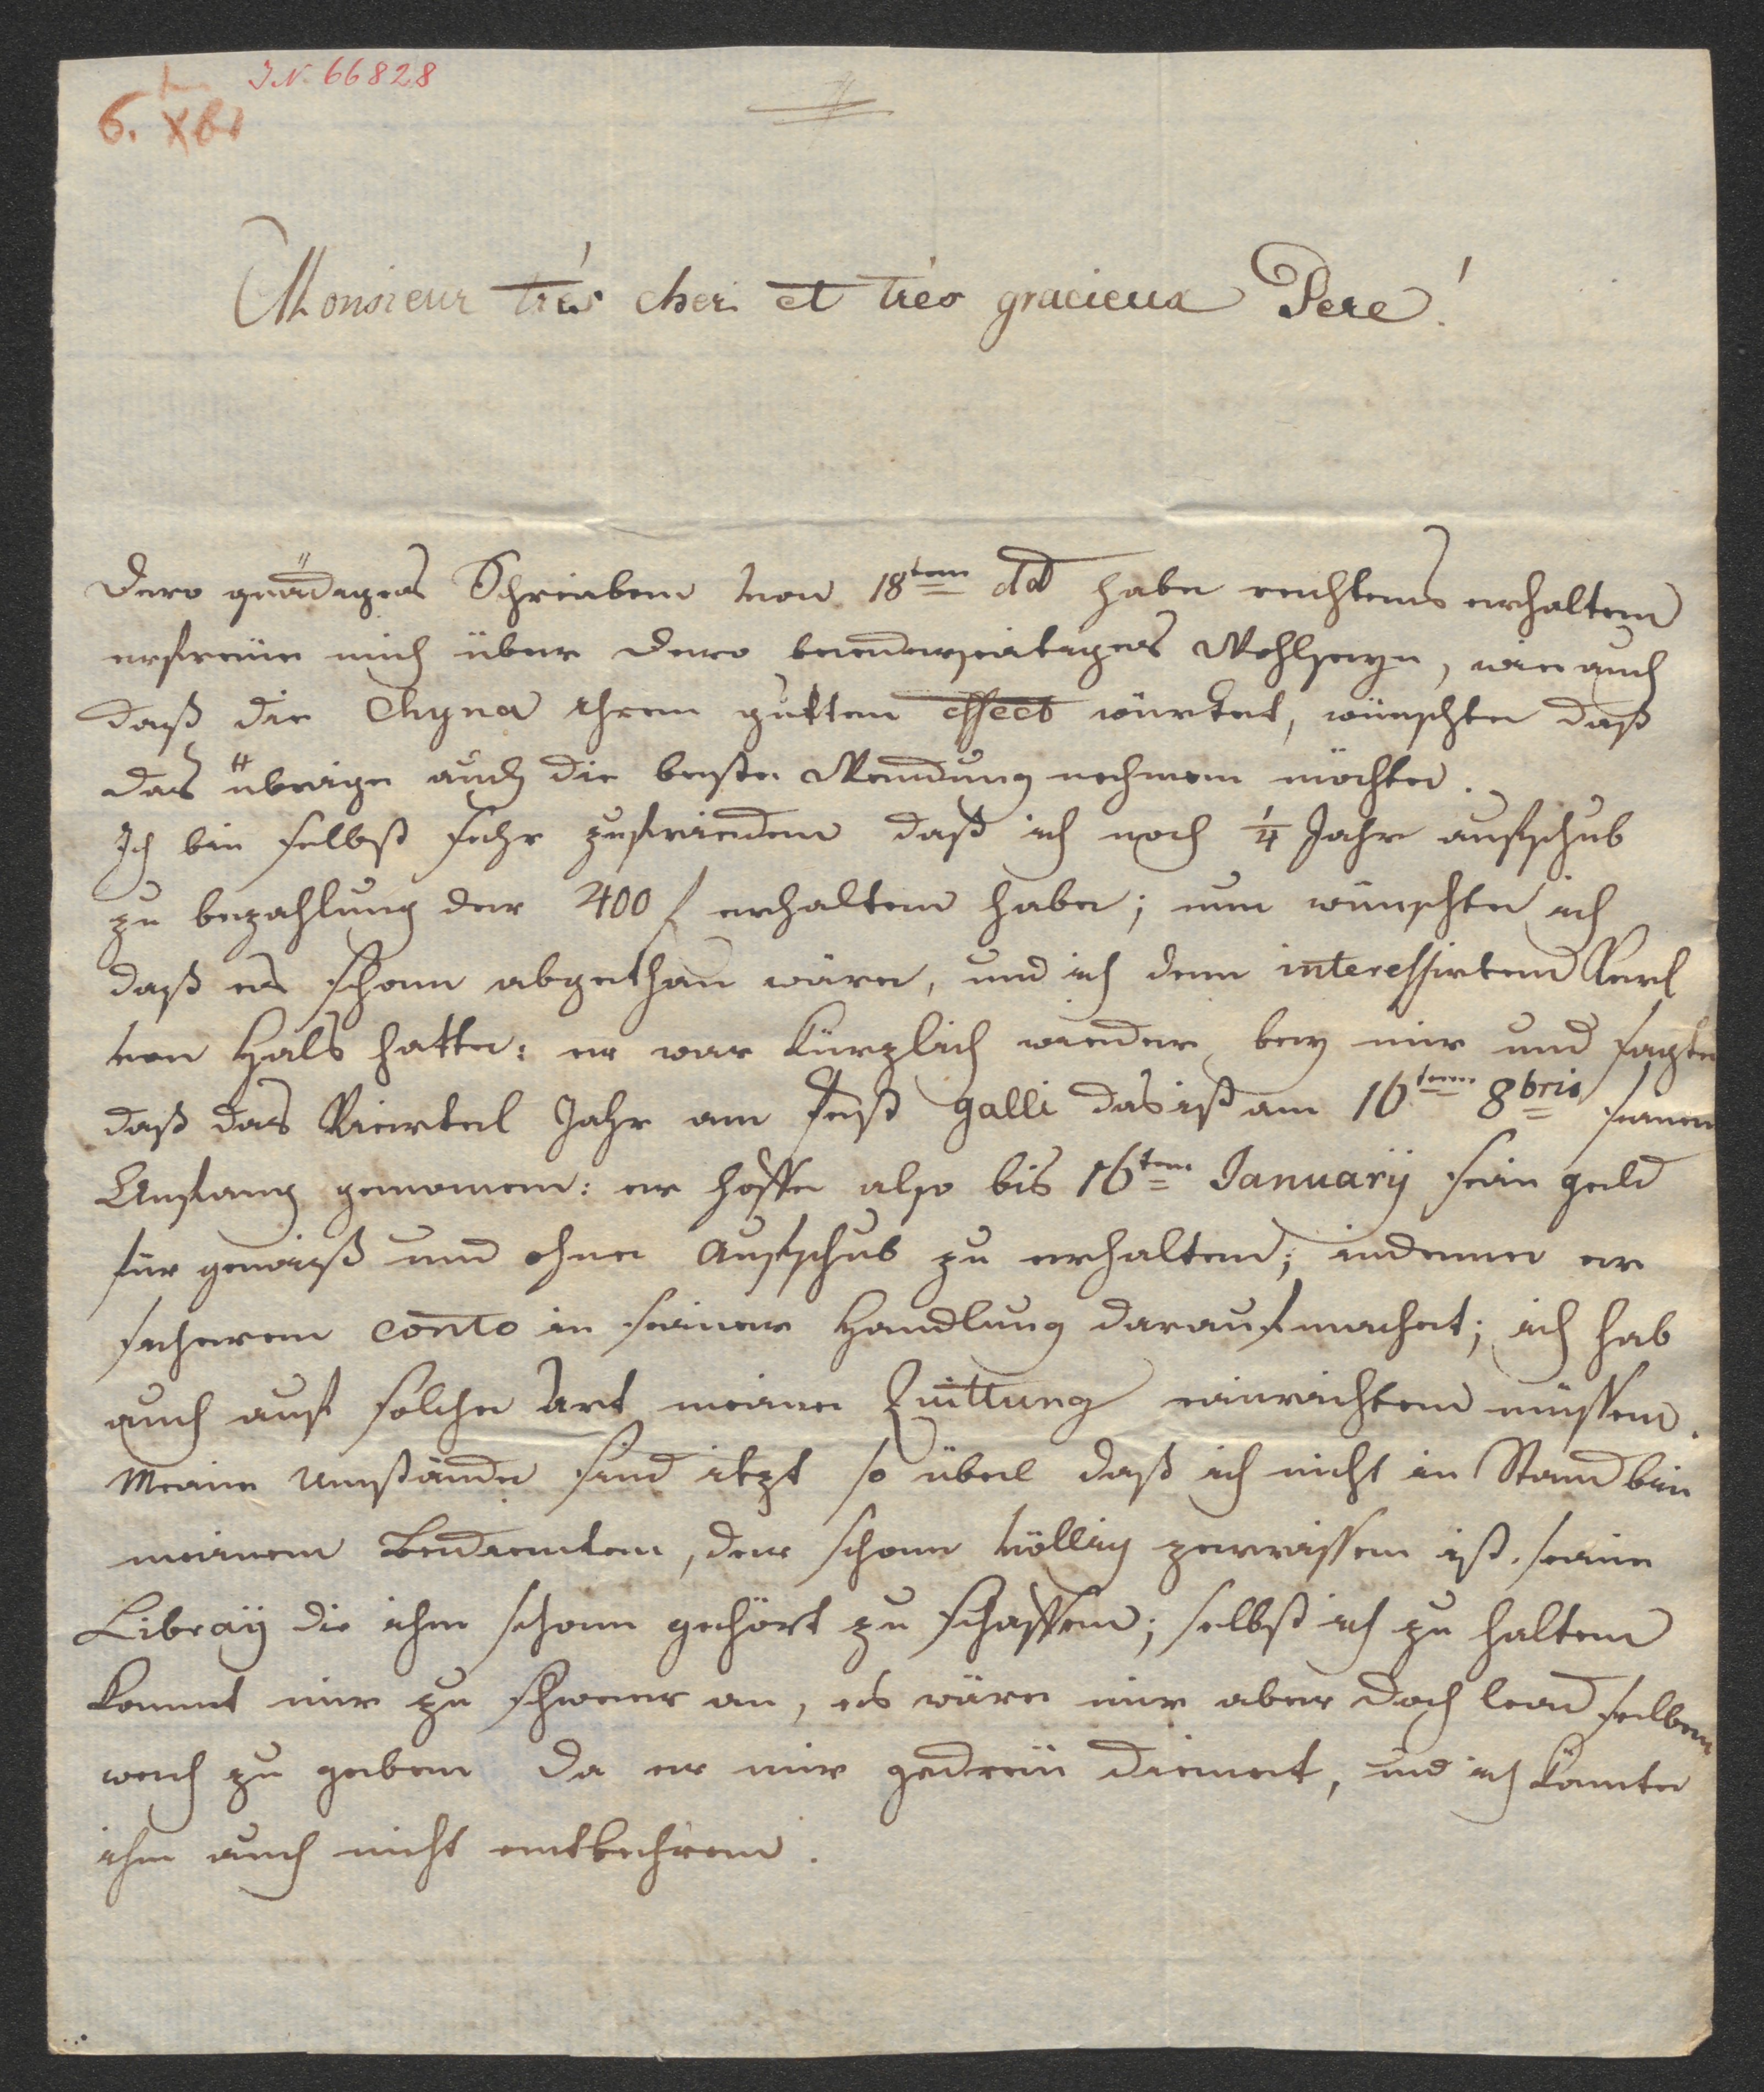 J.N. 66828
6. Xbr
Monsieur très cher et très gracieux Pere!
Dero gnädiges Schreiben von 18ten dd habe rechtens erhalten
erfreüe mich über dero beederseitiges Wohlseyn, wie auch
daß die Chyna ihren gutten effect würket, wünschte daß
das übrige auch die beste Wendung nehmen möchte.
Ich bin selbst sehr zufrieden daß ich noch 1/4 Jahr aufschub
zu bezahlung der 400 f erhalten habe; nun wünschte ich
daß es schon abgethan wäre, und ich den interessirten Kerl
von Hals hatte: er war kürzlich wieder bey mir und sagte
daß das Viertel Jahr am Fest Galli das ist am 16ten 8bris seinen
Anfang genomen: er hoffe also bis 16ten Januarÿ sein geld
für gewiß und ohne Aufschub zu erhalten; indeme er
sicheren conto in seiner Handlung darauf machet; ich hab
auch auf solche Art meine Quittung einrichten müssen.
Meine Umstände sind itzt so übel daß ich nicht in Stand bin
meinem Bedienten, der schon völlig zerrissen ist. seine
Libraÿ die ihm schon gehört zu schaffen; selbst ich zu halten
kommt mir zu schwer an, es wäre mir aber doch leid selben
wech zu geben da er mir gedreü dienet, und ich könnte
ihm auch nicht entbehren.